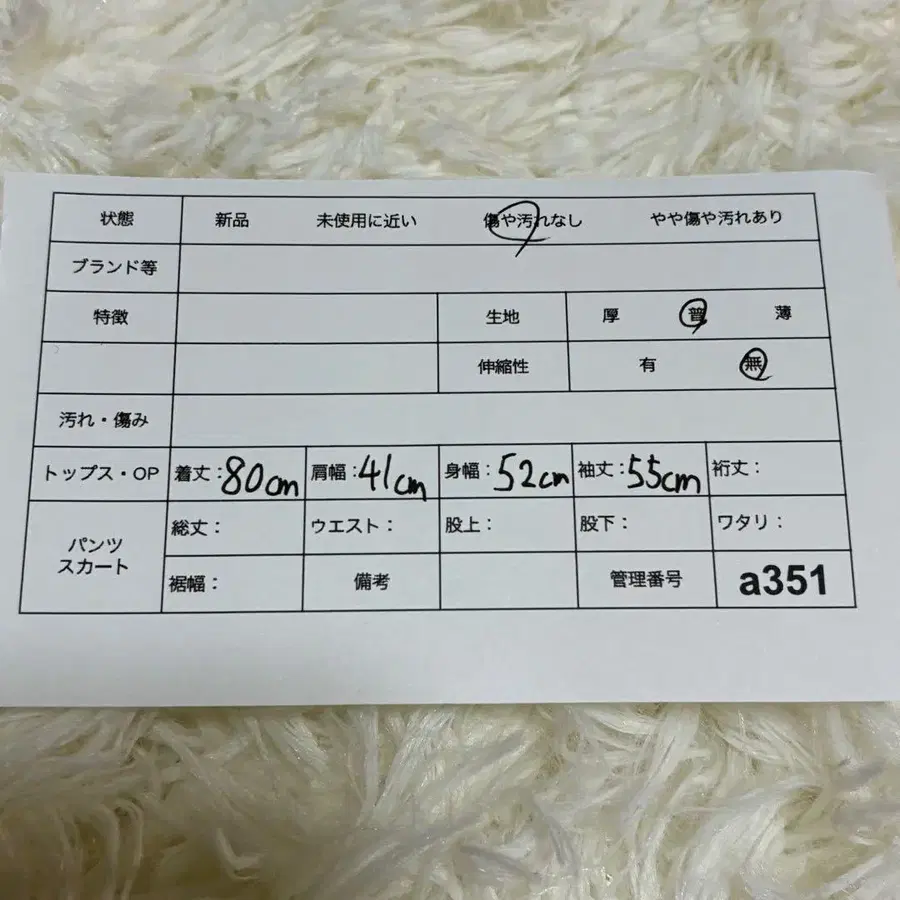 状態 新品 未使用に近い 傷や汚れなし やや傷や汚れあり
ブランド等
特徴 生地 厚 普 薄
伸縮性 有 無
汚れ・傷み
トップス・OP 着丈：80cm 肩幅：41cm 身幅：52cm 袖丈：55cm 裄丈：
パンツ
スカート
総丈： ウエスト： 股上： 股下： ワタリ：
裾幅： 備考 管理番号 a351